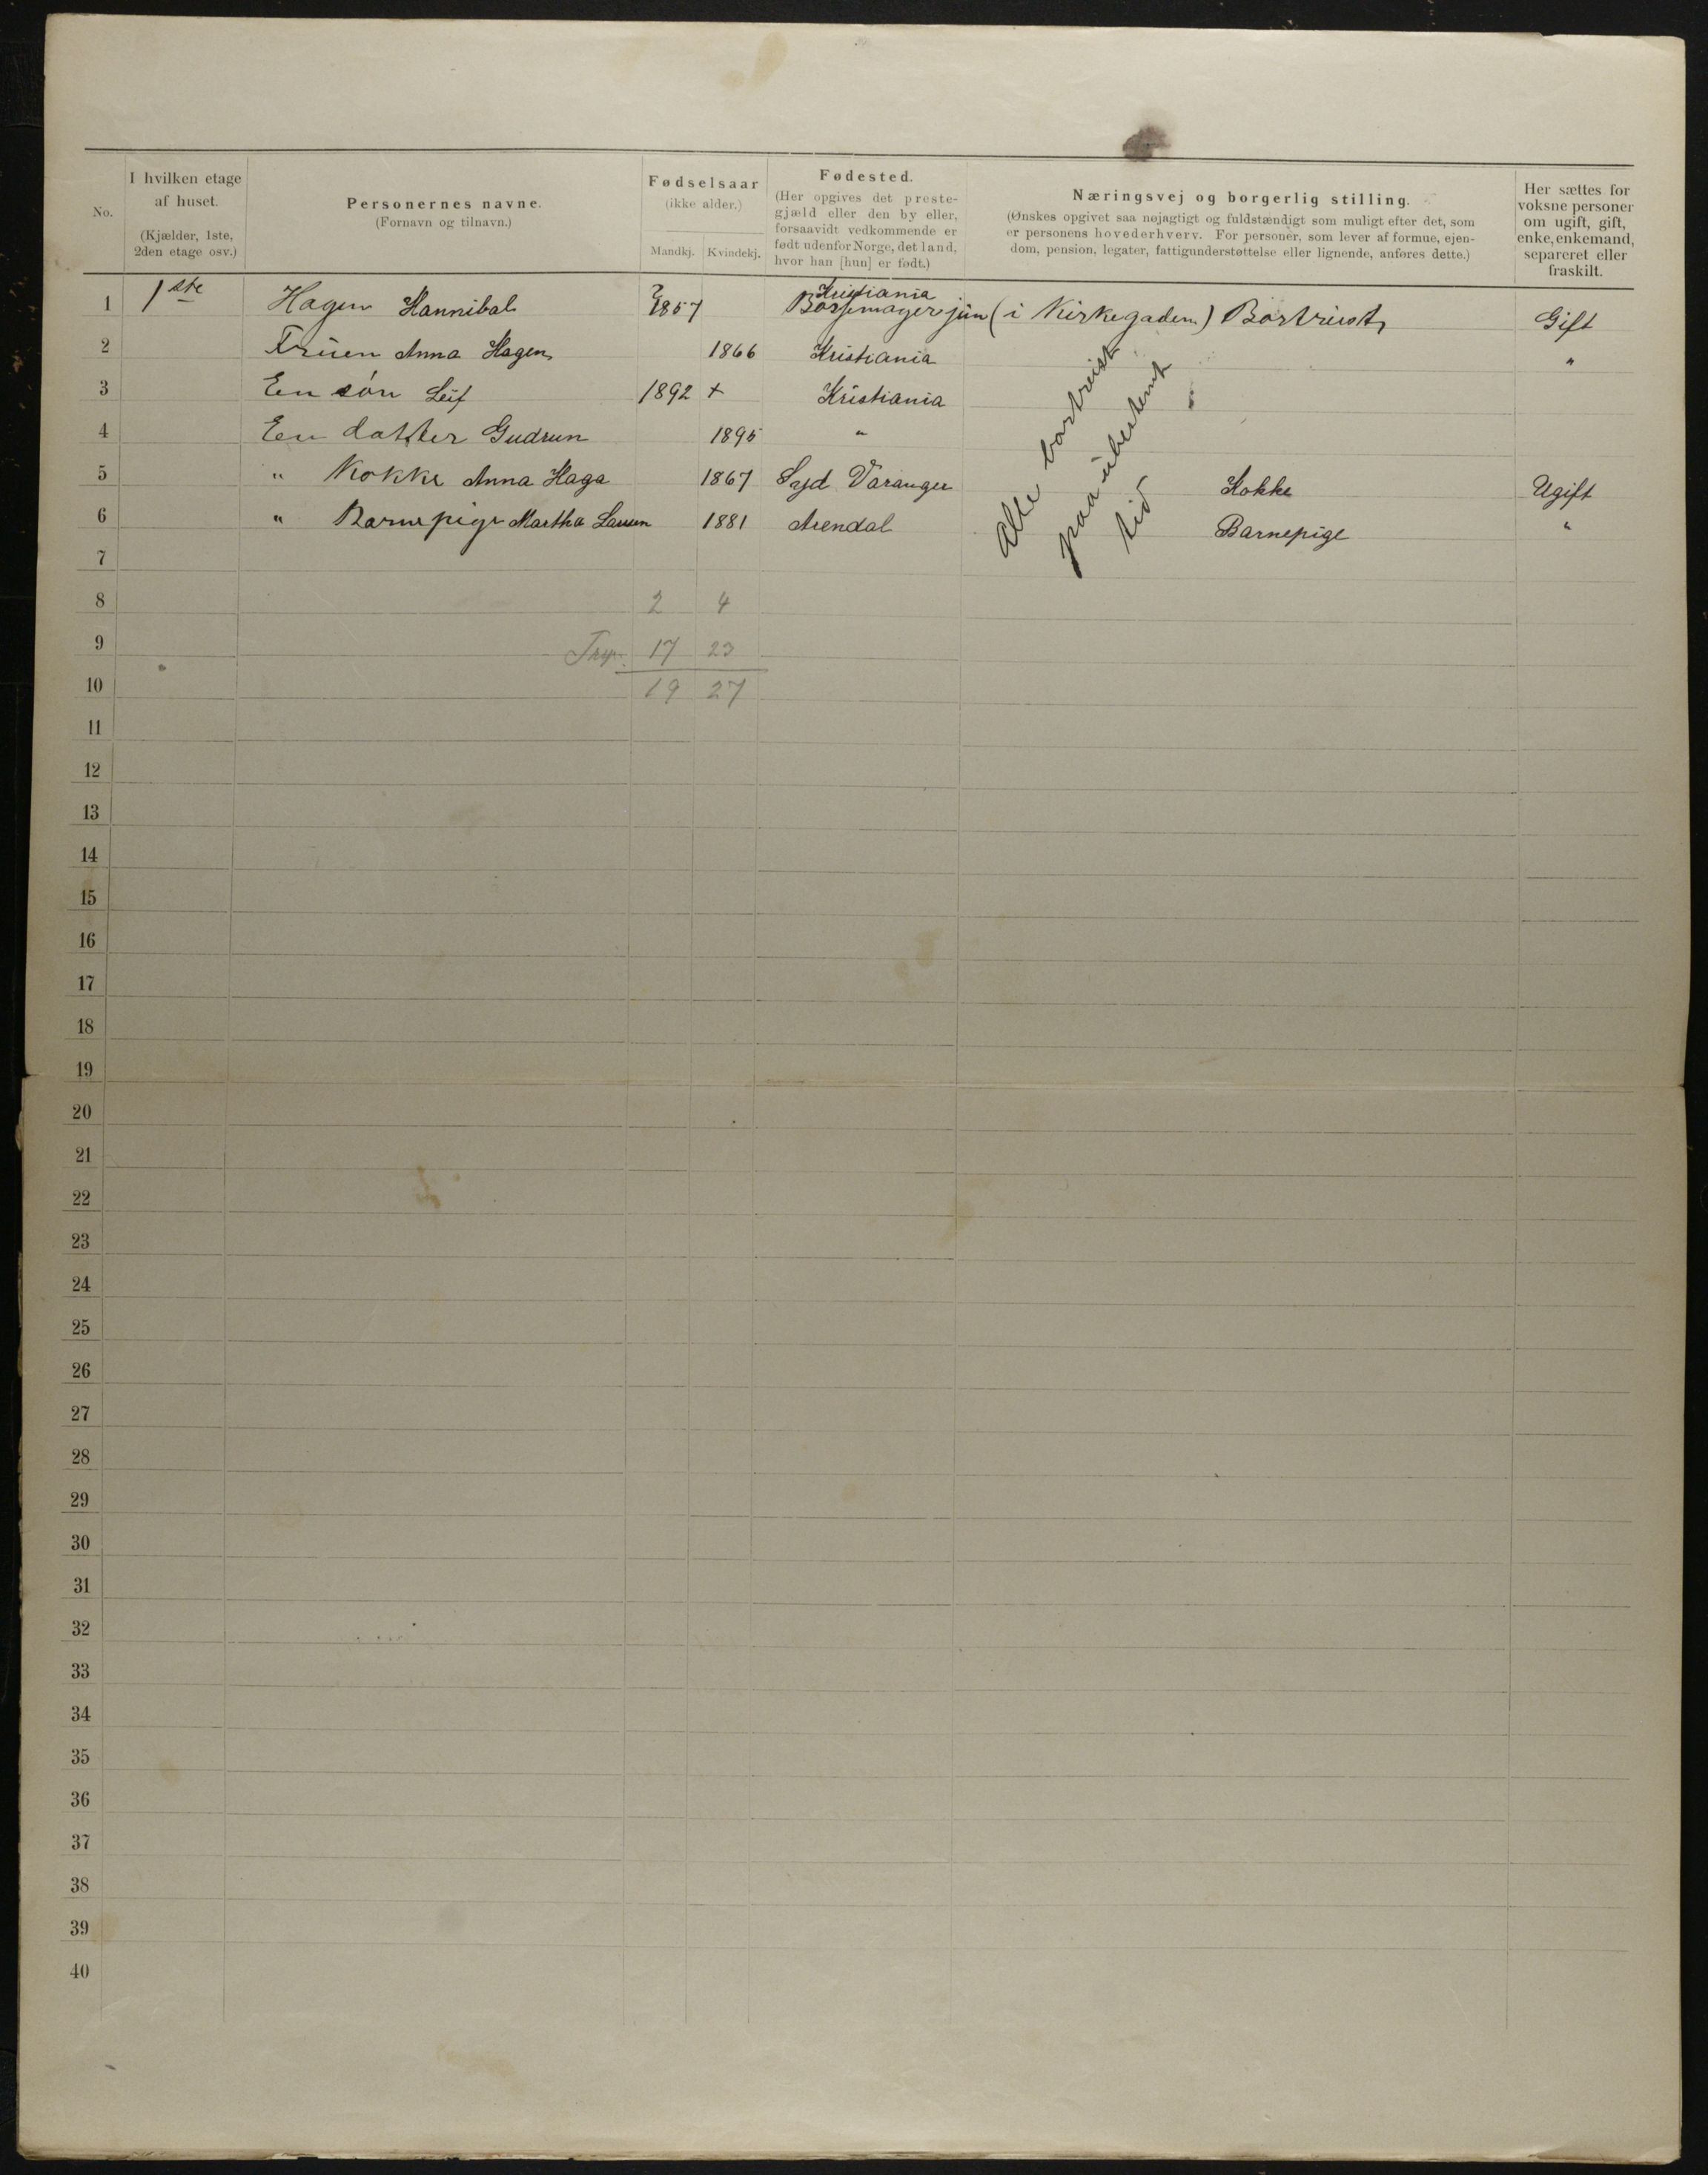 No.
I hvilken etage
af huset.
(Kjælder, 1ste,
2den etage osv.)
Personernes navne.
(Fornavn og tilnavn.)
Fødselsaar
(ikke alder.)
Mandkj. Kvindekj.
Fødested.
(Her opgives det preste-
gjæld eller den by eller,
forsaavidt vedkommende er
født udenfor Norge, det land,
hvor han [hun] er født.)
Næringsvej og borgerlig stilling.
(Ønskes opgivet saa nøjagtigt og fuldstændigt som muligt efter det, som
er personens hovederhverv. For personer, som lever af formue, ejen-
dom, pension, legater, fattigunderstøttelse eller lignende, anføres dette.)
Her sættes for
voksne personer
om ugift, gift,
enke, enkemand,
separeret eller
fraskilt.
Kristiania
1 1ste Hagen Hannibal 1857 Børsemager jün (i Kirkegaden) Bortreist, Gift
2 Früen Anna Hagen 1866 Kristiania "
3 En søn Leif 1892 + Kristiania
4 En datter Gudrun 1895 "
5 " Kokke Anna Haga 1867 Syd Varanger Kokke Ugift
6 " Barnepige Martha Larsen 1881 Arendal Barnepige "
Alle bortreist
paa übestemt
tid
7
8 2 4
9 17 23
10 19 27
11
12
13
14
15
16
17
18
19
20
21
22
23
24
25
26
27
28
29
30
31
32
33
34
35
36
37
38
39
40